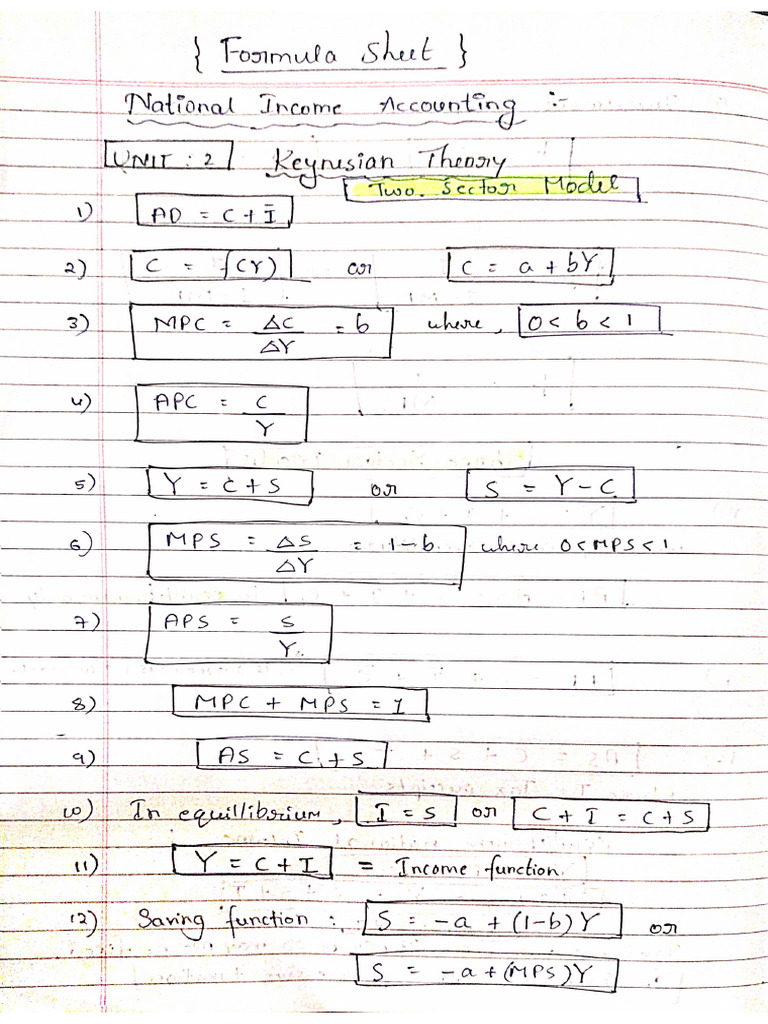 { Formula Sheet }
National Income Accounting :-
UNIT : 2 Keynesian Theory
Two. Sector Model
1) AD = C + Ī
2) C = f(Y) or C = a + bY
3) MPC = ΔC/ΔY = b where, 0 < b < 1
4) APC = C/Y
5) Y = C + S or S = Y - C
6) MPS = ΔS/ΔY = 1 - b where 0 < MPS < 1.
7) APS = S/Y
8) MPC + MPS = 1
9) AS = C + S
10) In equillibrium, I = S or C + I = C + S
11) Y = C + I = Income function
12) Saving function : S = -a + (1-b) Y or
S = -a + (MPS) Y